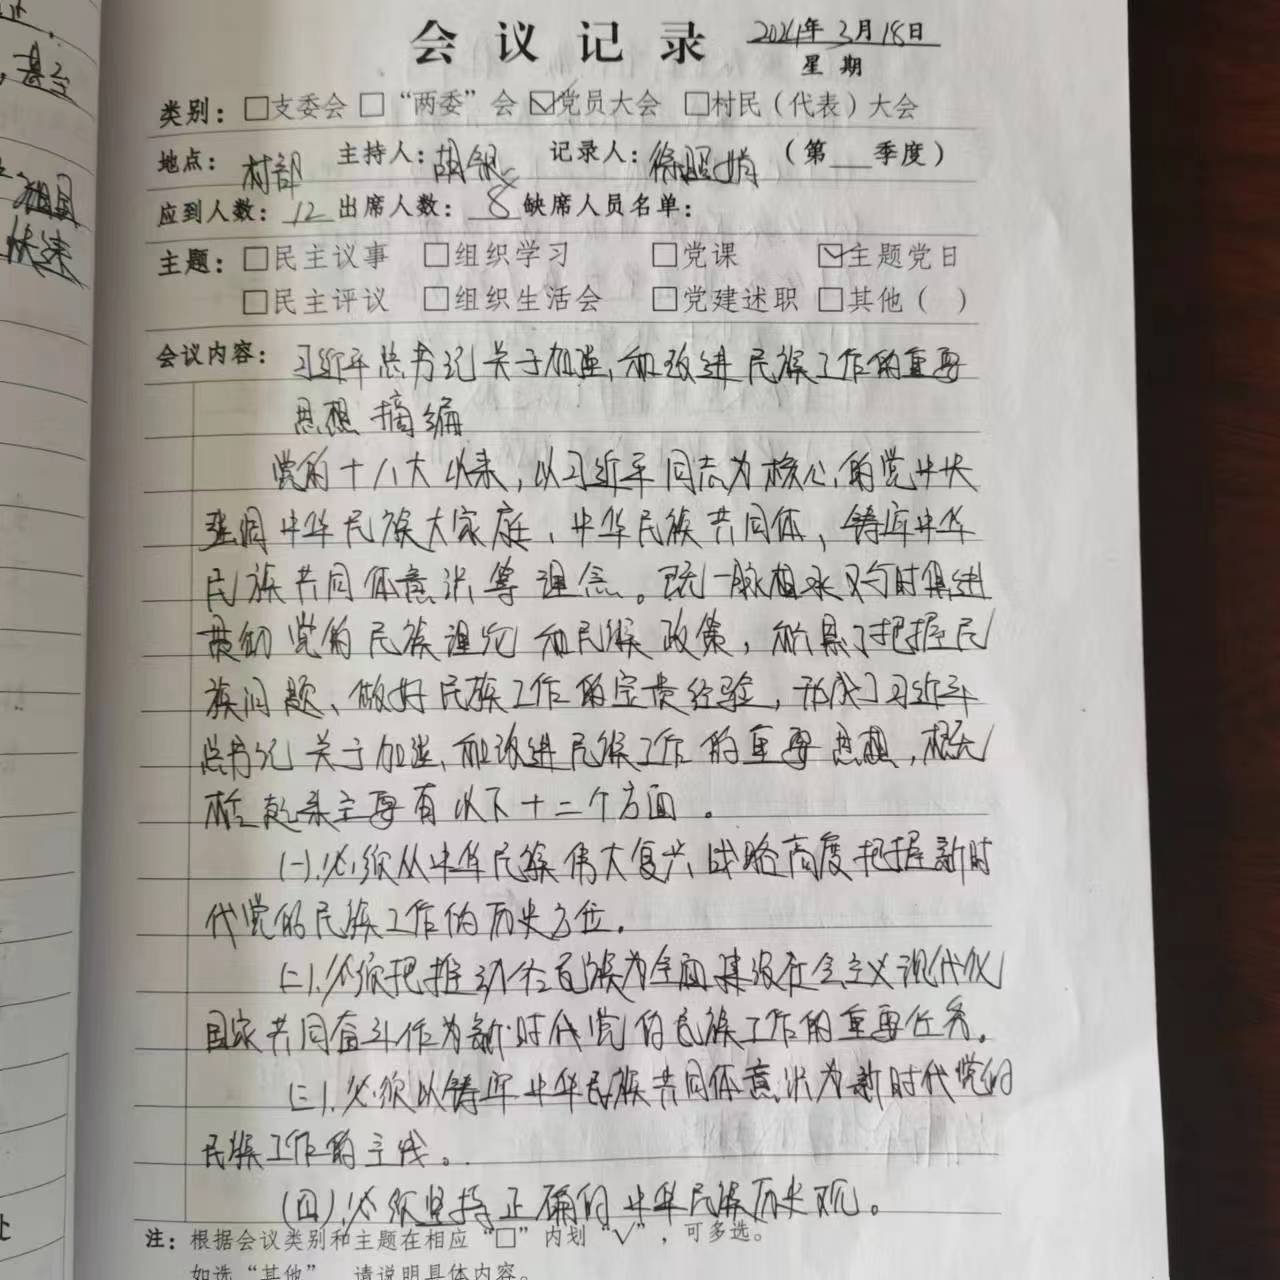 会议记录 2024年3月18日
星期
类别：□支委会 □“两委”会 ☑党员大会 □村民（代表）大会
地点：村部 主持人：胡银 记录人：徐照娟 （第 季度）
应到人数：12 出席人数：8 缺席人员名单：
主题：□民主议事 □组织学习 □党课 ☑主题党日
□民主评议 □组织生活会 □党建述职 □其他（ ）
会议内容：习近平总书记关于加强和改进民族工作的重要
思想摘编
党的十八大以来，以习近平同志为核心的党中央
强调中华民族大家庭、中华民族共同体，铸牢中华
民族共同体意识等理念。既一脉相承又与时俱进
贯彻党的民族理论和民族政策，积累了把握民
族问题、做好民族工作的宝贵经验，形成了习近平
总书记关于加强和改进民族工作的重要思想，概
括起来主要有以下十二个方面。
(一)、必须从中华民族伟大复兴战略高度把握新时
代党的民族工作的历史方位。
(二)、必须把推动各民族为全面建设社会主义现代化
国家共同奋斗作为新时代党的民族工作的重要任务。
(三)、必须以铸牢中华民族共同体意识为新时代党的
民族工作的主线。
(四)、必须坚持正确的中华民族历史观。
注：根据会议类别和主题在相应“□”内划“√”，可多选。
如选“其他”，请说明具体内容。
甚至
祖国
快速
处